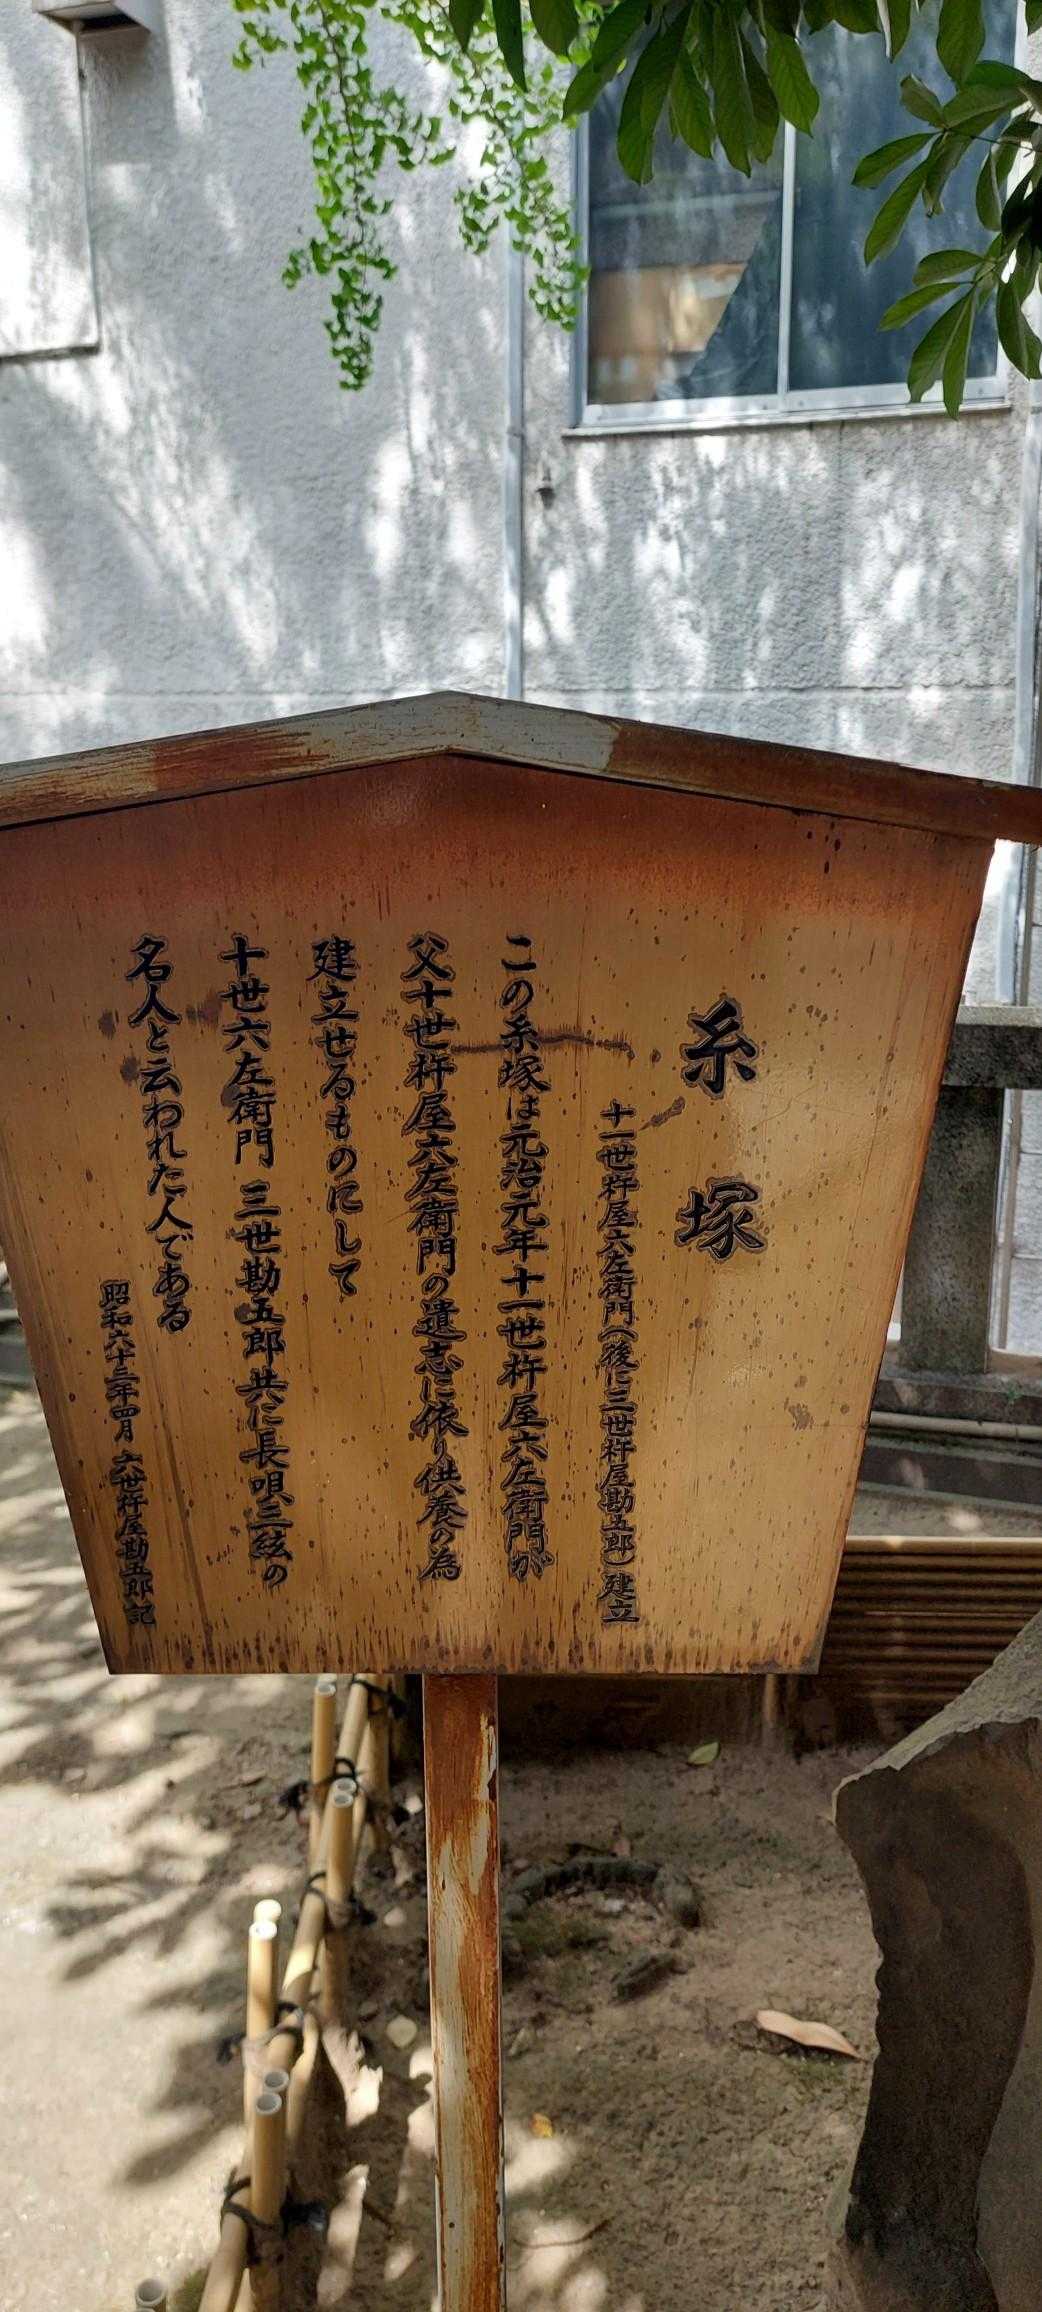 糸塚
十一世杵屋六左衛門(後に三世杵屋勘五郎)建立
この糸塚は元治元年十一世杵屋六左衛門が
父十世杵屋六左衛門の遺志に依り供養の為
建立せるものにして
十世六左衛門 三世勘五郎共に長唄、三絃の
名人と云われた人である
昭和六十三年四月 六世杵屋勘五郎記